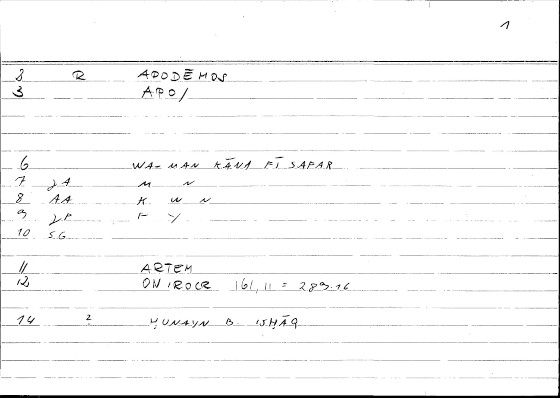 1
8 R APODĒMOS
3 APO/
6 WA-MAN KĀNA FĪ SAFAR
7 JA M N
8 AA K W N
9 JP F Y
10 SG
11 ARTEM
12 ONIROCR 161,11 = 289.16
14 2 ḤUNAYN B. ISḤĀQ